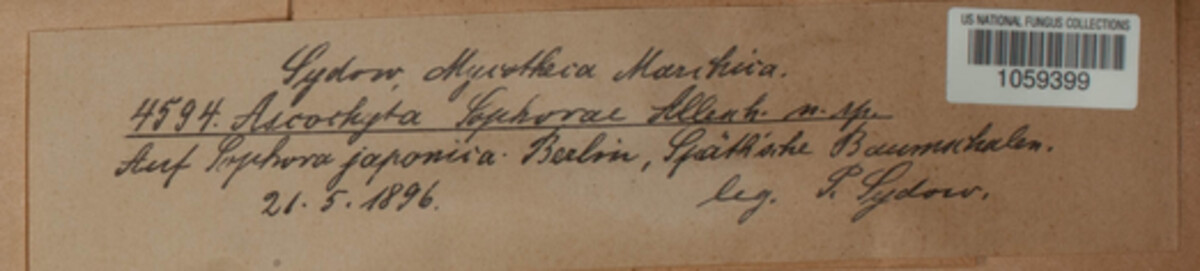 Sydow, Mycotheca Marchica.
4594. Ascochyta Sophorae Allesch. n. sp.
Auf Sophora japonica. Berlin, Späth'sche Baumschulen.
21. 5. 1896. leg. P. Sydow.
US NATIONAL FUNGUS COLLECTIONS
1059399